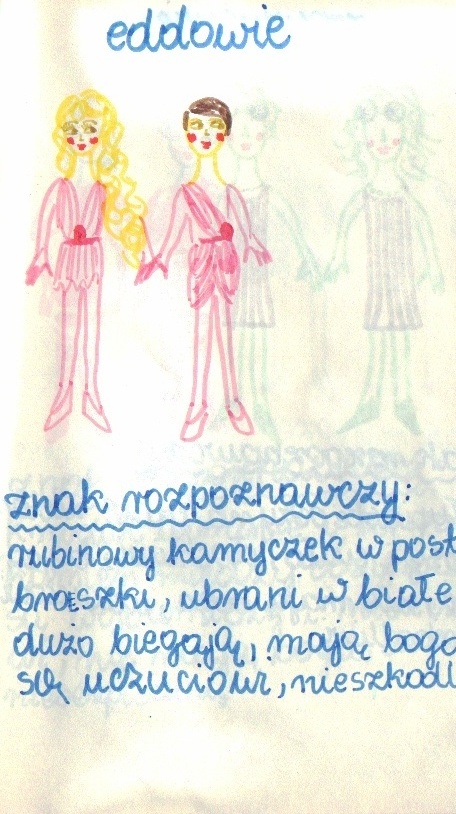 eddowie
znak rozpoznawczy:
rubinowy kamyczek w post
broszki, ubrani w białe
dużo biegają, mają boga
są uczuciowi, nieszkodl